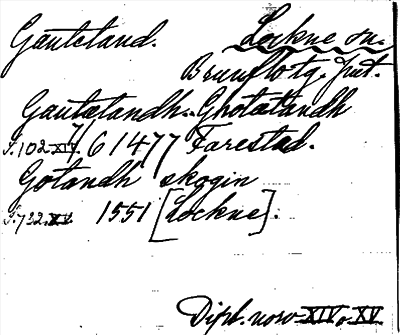 Gauteland. Lockne sn.
Brunflo tg. Jmt.
Gautælandh. Ghotælandh
S. 102 XIV. 7/6 1477 Farestad.
Gotandh skogin
S. 722 XV 1551 [Lockne].
Dipl. norv XIV o. XV.